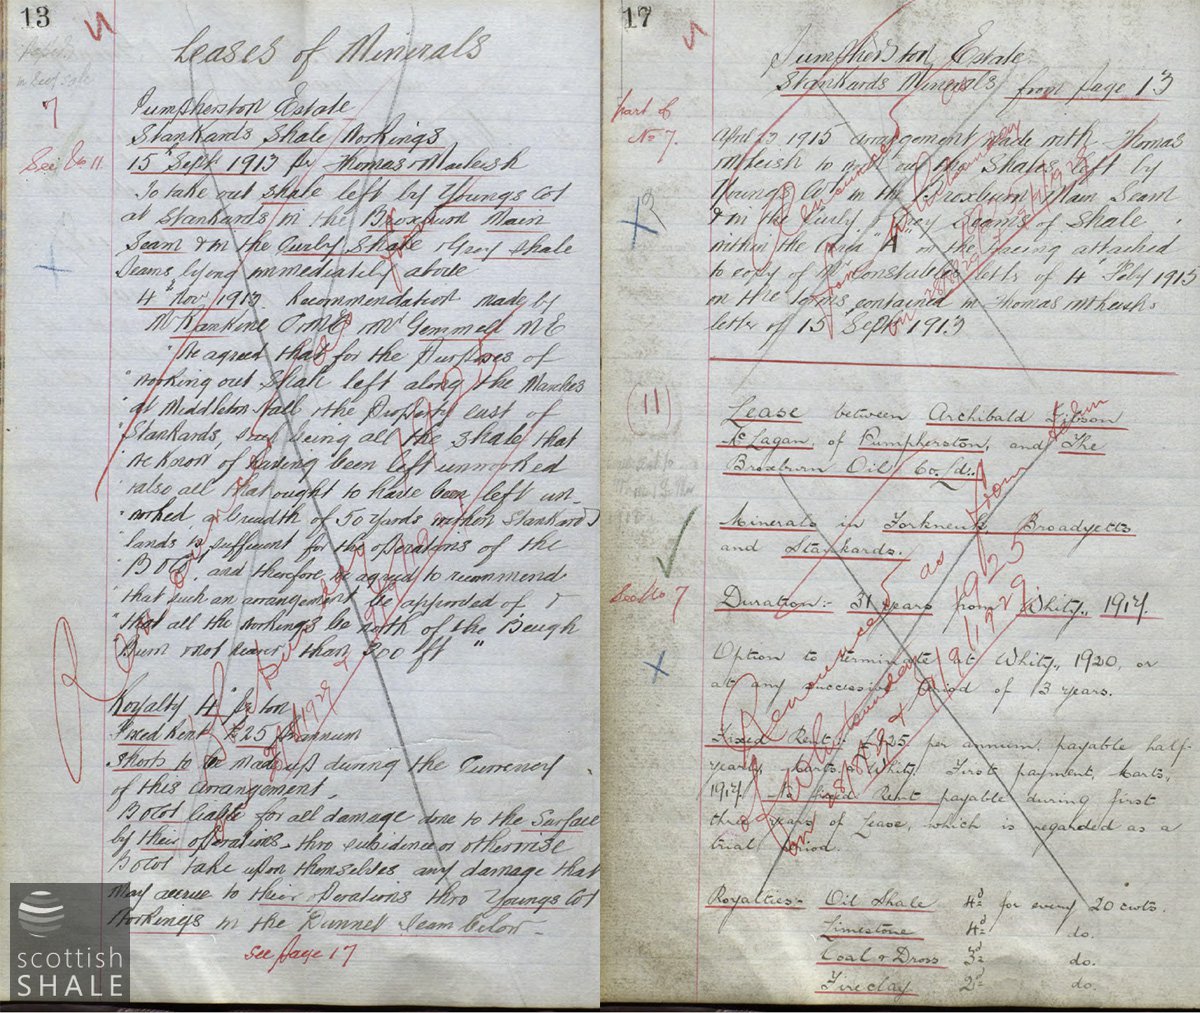 13
Leases of Minerals
7
See No 11
Pumpherston Estate
Stankards Shale Workings
15th Sept 1913 pr Thomas McLeish
To take out shale left by Youngs Col
at Stankards in the Broxburn Main
Seam & in the Curly Shale & Grey Shale
Seams lying immediately above
4th Nov 1913 Recommendation made by
Mr Rankine C.M.E & Mr Gemmell M E
"We agreed that for the purposes of
"working out shale left along the Marches
"at Middleton Hall & the Property east of
"Stankards, being all the shale that
"we know of having been left unworked
"also all that ought to have been left un-
"worked, a breadth of 50 yards within Stankards
"lands is sufficient for the operations of the
"B O Col, and therefore we agreed to recommend
"that such an arrangement be approved of &
"that all the workings be north of the Beugh
"Burn & not nearer than 300 ft "
Royalty 4d per ton
Fixed Rent £25 per annum
Shorts to be made up during the currency
of this arrangement.
B O Col liable for all damage done to the Surface
by their operations - thro subsidence or otherwise
B O Col take upon themselves any damage that
may accrue to their operations thro Youngs Col
workings in the Dunnet Seam below -
See page 17
Renounced
28/8/29 & 9/11/1929
scottish
SHALE
17
Pumpherston Estate
Stankards Minerals from page 13
Part of
No 7.
April 13 1915 arrangement made with Thomas
McLeish to work out the Shales left by
Youngs Col in the Broxburn Main Seam
& in the Curly & Grey Seams of Shale
within the Area "A" on the tracing attached
to copy of Mr Constable's letter of 4 Feby 1913
on the terms contained in Thomas McLeish's
letter of 15 Sept 1913
Renounced as from Whitsunday
11
Lease between Archibald Gibson
McLagan, of Pumpherston, and The
Broxburn Oil Co. Ld:.
Minerals in Forkneuk, Broadyetts
and Stankards.
See No 7
Duration:- 31 years from Whity., 1917.
Option to terminate at Whity., 1920, or
at any successive period of 3 years.
Fixed Rent:- £25 per annum, payable half-
yearly, Marts. & Whity. First payment, Marts.,
1917. No fixed Rent payable during first
three years of Lease, which is regarded as a
trial period.
Renounced as from
Whitsunday 1925
on 28/8/29 & 9/11/29.
Royalties:- Oil Shale 4d for every 20 cwts.
Limestone 4d do.
Coal & Dross 3d do.
Fireclay 2d do.